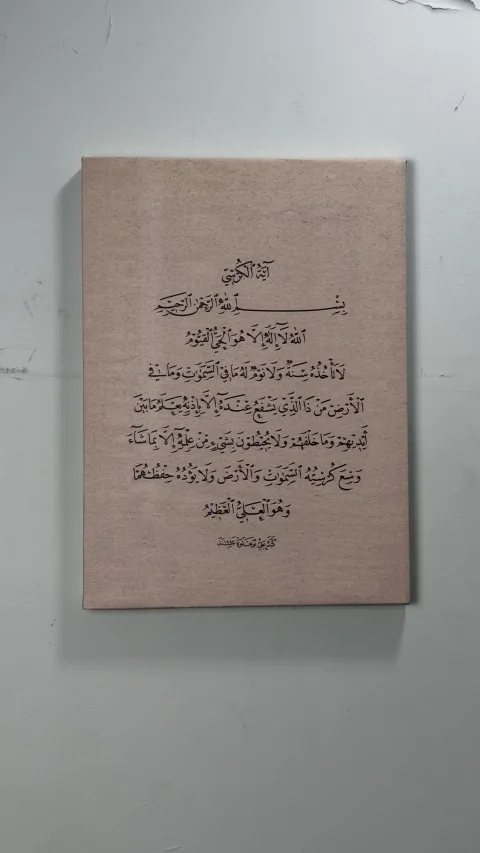 آيَةُ الْكُرْسِيِّ
بِسْمِ اللهِ الرَّحْمٰنِ الرَّحِيْمِ
اَللهُ لَا إِلٰهَ إِلَّا هُوَ الْحَيُّ الْقَيُّوْمُ
لَا تَأْخُذُهُ سِنَةٌ وَلَا نَوْمٌ لَهُ مَا فِي السَّمٰوَاتِ وَمَا فِي
الْأَرْضِ مَنْ ذَا الَّذِي يَشْفَعُ عِنْدَهُ إِلَّا بِإِذْنِهِ يَعْلَمُ مَا بَيْنَ
أَيْدِيْهِمْ وَمَا خَلْفَهُمْ وَلَا يُحِيْطُوْنَ بِشَيْءٍ مِنْ عِلْمِهِ إِلَّا بِمَا شَاءَ
وَسِعَ كُرْسِيُّهُ السَّمٰوَاتِ وَالْأَرْضَ وَلَا يَؤُدُهُ حِفْظُهُمَا
وَهُوَ الْعَلِيُّ الْعَظِيْمُ